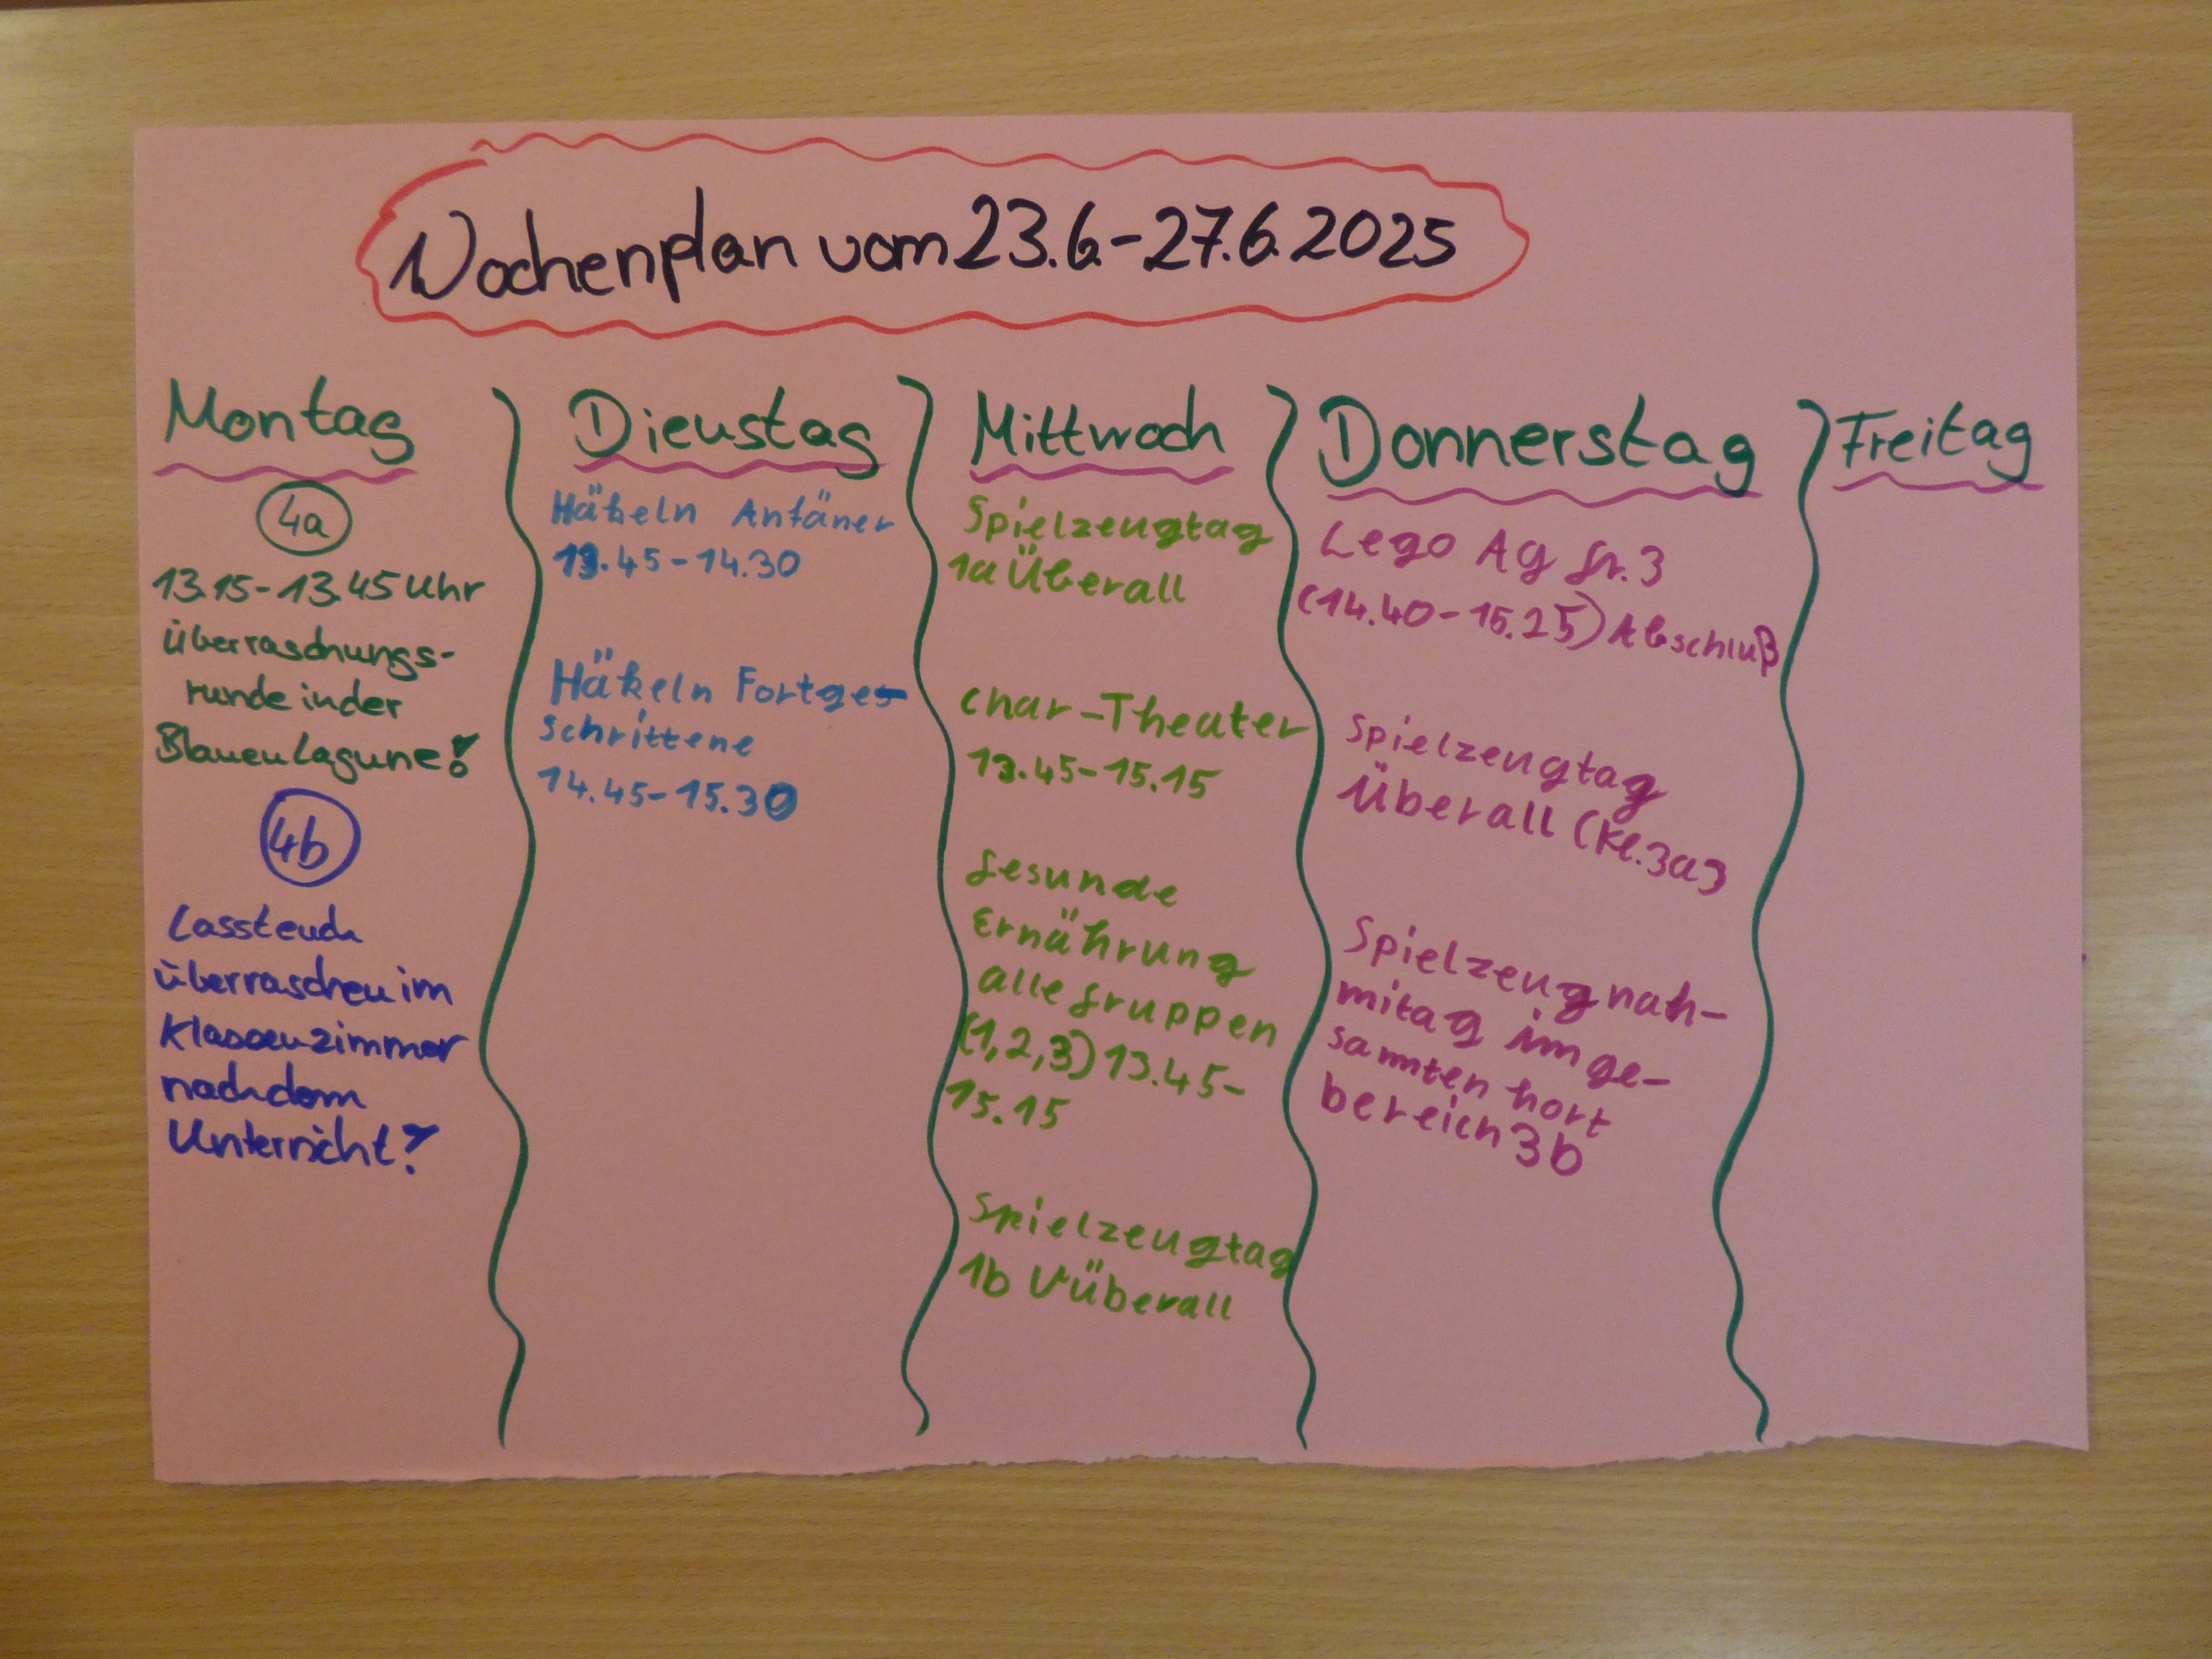 Wochenplan vom 23.6.-27.6.2025
Montag
4a
13.15-13.45 Uhr
Überraschungs-
runde in der
Blauen Lagune!
4b
Lasst euch
überraschen im
Klassenzimmer
nach dem
Unterricht!
Dienstag
Häkeln Anfäner
13.45-14.30
Häkeln Fortge-
schrittene
14.45-15.30
Mittwoch
Spielzeugtag
1a Überall
Char-Theater
13.45-15.15
Gesunde
Ernährung
alle Gruppen
(1,2,3) 13.45-
15.15
Spielzeugtag
1b Überall
Donnerstag
Lego AG Gr.3
(14.40-15.25) Abschluß
Spielzeugtag
Überall (Kl.3a)
Spielzeugnah-
mitag im ge-
samten hort
bereich 3b
Freitag